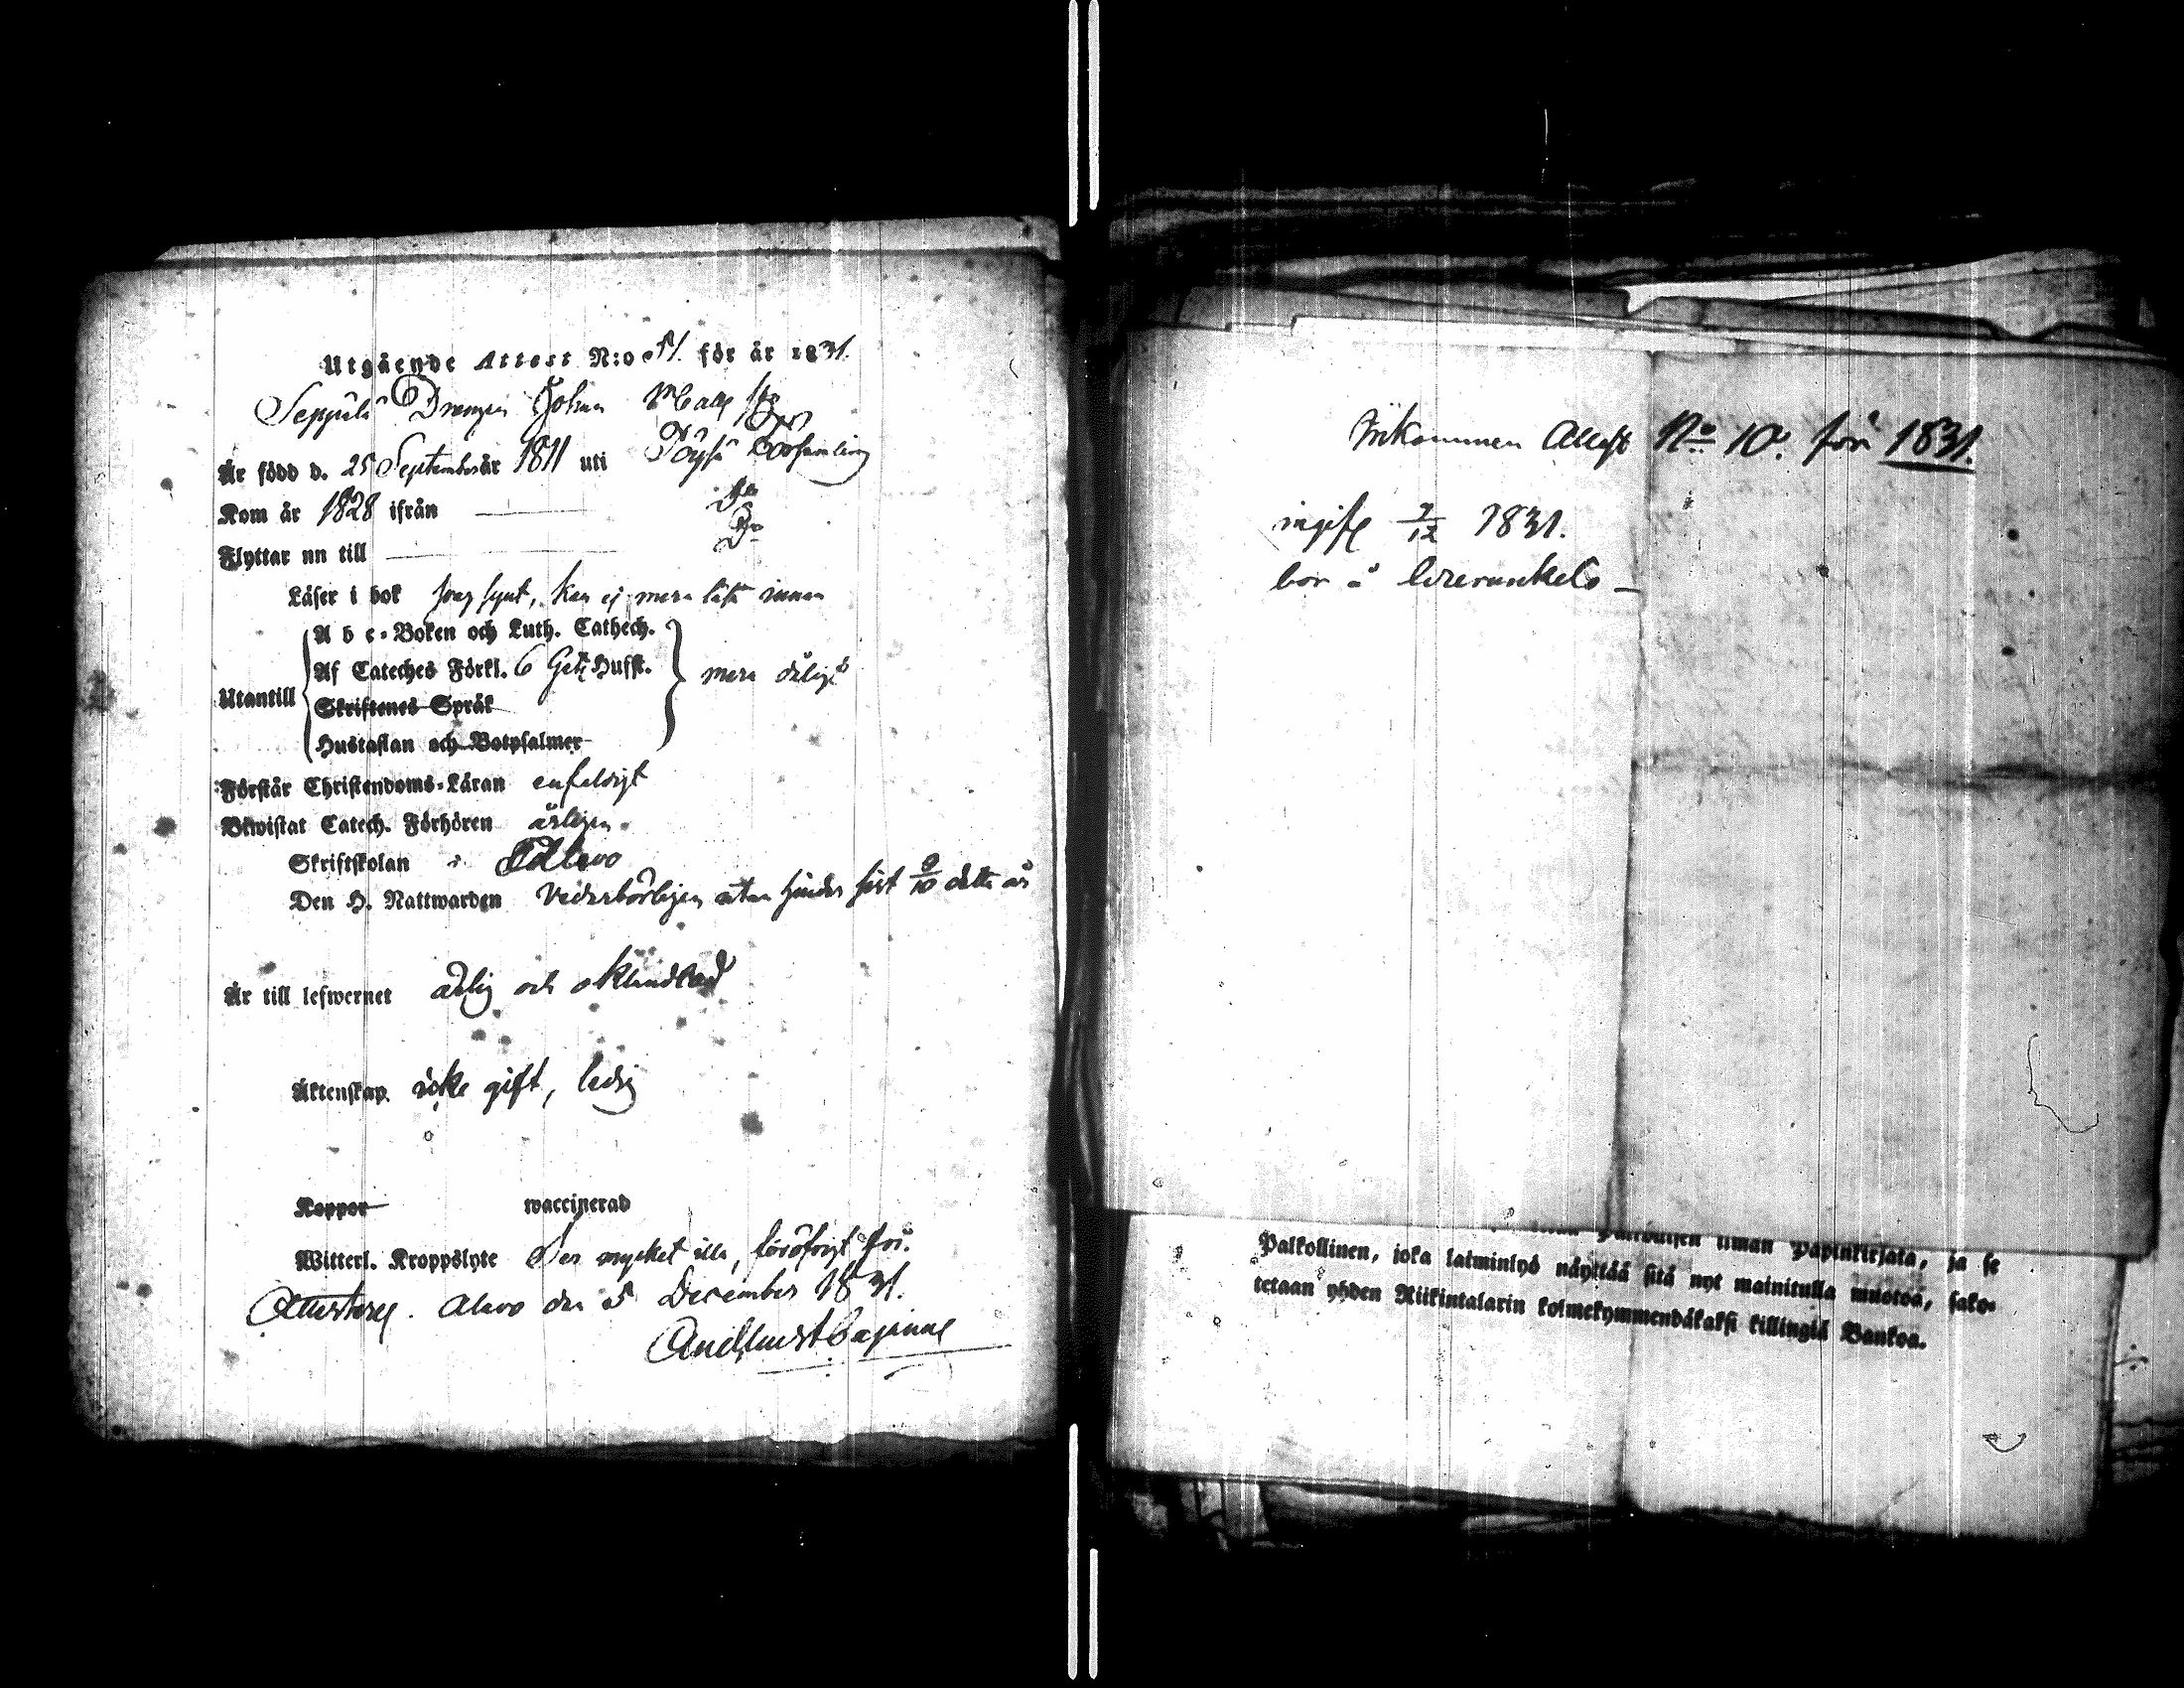 Utgående Attest N:o 51. för år 1831.
Seppälä Drengen Johan Matts
Är född d. 25 September år 1811 uti Töysä Församling
Kom år 1828 ifrån — Do
Flyttar nu till — Do
Läser i bok svag synt, kan ej mera läsa innan
A b c-Boken och Luth. Cathech.
Af Cateches Förkl. 6 Hufst.
Utantill mera dåligt
Skriftenes Språk
Hustaflan och Botpsalmer
Förstår Christendoms-Läran enfaldigt
Bewistat Catech. Förhören årligen
Skriftskolan i Alavo
Den H. Nattwarden vederbörligen utan hinder sist 9/10 detta år
Är till lefwernet ärlig och oklandrad
Äktenskap icke gift, ledig
Koppor waccinerad
Witterl. Kroppslyte Ser mycket illa, föröfrigt för.
Attesterar. Alavo den 5 December 1831.
Inkommen Attest No 10. för 1831.
ingift 7/12 1831.
bor å
ilman Papinkirjata, ja se
Palkollinen, joka laiminlyö näyttää sitä nyt mainitulla muotoa, sako-
tetaan yhden Riikintalarin kolmekymmendäkaksi killingiä Bankoa.